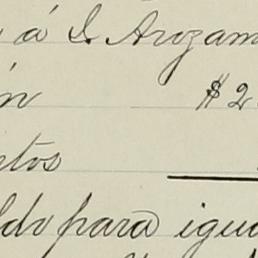 á D. Arozam
ón $2
tos
ldo para igua